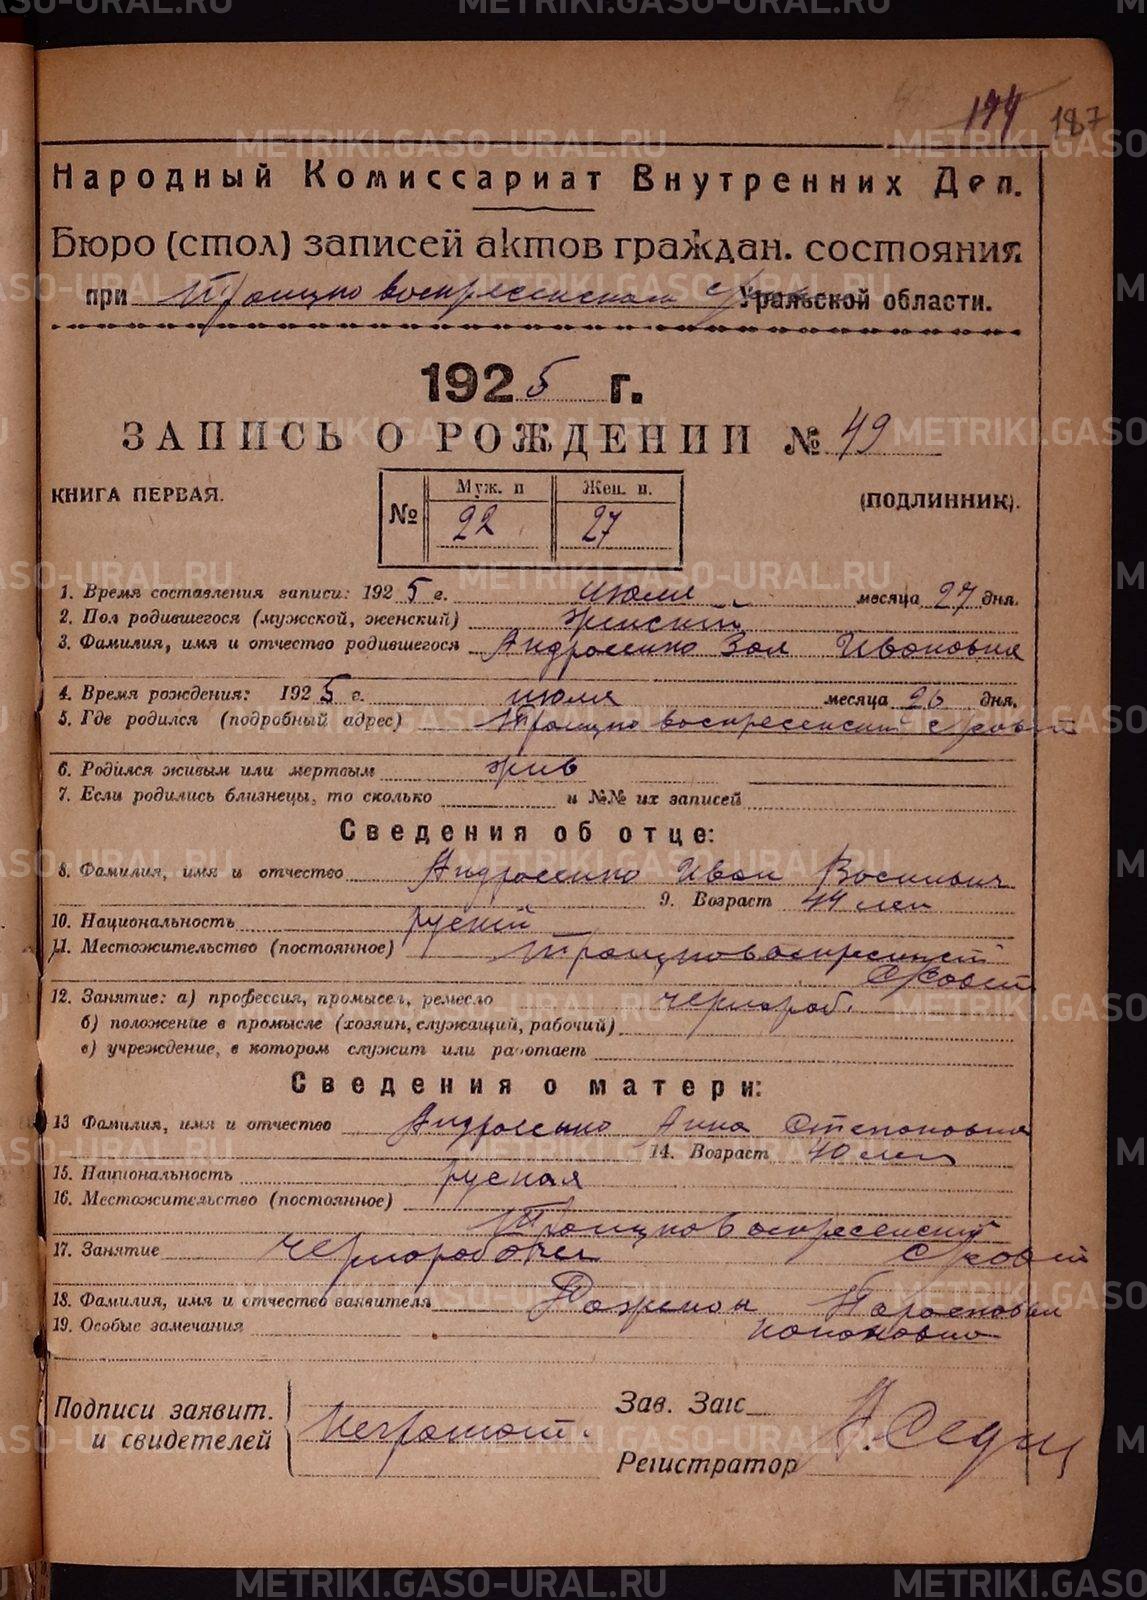 METRIKI.GASO-URAL.RU
194 187
Народный Комиссариат Внутренних Дел.
Бюро (стол) записей актов граждан. состояния
при Троицко воскресенском с/ Уральской области.
1925 г.
ЗАПИСЬ О РОЖДЕНИИ № 49
КНИГА ПЕРВАЯ. (ПОДЛИННИК).
№ Муж. п Жен. п.
22 27
1. Время составления записи: 1925 г. июля месяца 27 дня.
2. Пол родившегося (мужской, женский) женский
3. Фамилия, имя и отчество родившегося Андросенко Зоя Ивоновна
4. Время рождения: 1925 г. июля месяца 26 дня.
5. Где родился (подробный адрес) Троицко воскресенский с/совет
6. Родился живым или мертвым жив
7. Если родились близнецы, то сколько и №№ их записей
Сведения об отце:
8. Фамилия, имя и отчество Андросенко Иван Восильвич
9. Возраст 44 лет
10. Национальность руский
11. Местожительство (постоянное) Троицковоскресинст
с/совет
12. Занятие: а) профессия, промысел, ремесло чернораб.
б) положение в промысле (хозяин, служащий, рабочий)
в) учреждение, в котором служит или работает
Сведения о матери:
13 Фамилия, имя и отчество Андросенко Анна Степоновна
14. Возраст 40 лет
15. Национальность руская
16. Местожительство (постоянное)
Троицко Воскресенский
17. Занятие с/совет
18. Фамилия, имя и отчество заявителя
19. Особые замечания
Подписи заявит. Зав. Загс
и свидетелей Неграмот.
Регистратор